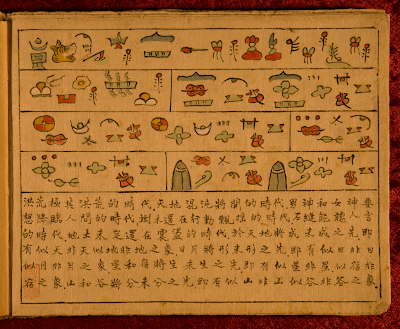 洪荒極其洪荒的時代天地混沌將開的時代男神和女神要
想降臨人間的時代樹木還在行動飄搖的時代石縫能人言
的時代,地土未定還在震盪的時代於天地將成未成之先即
有似天非天似地非地之象,日月將形未形之先即有似日非日
似月非月之象星和宿將生未生之先即有似星非星似宿非
之象山和谷將分未分之先即有似山非山似谷非谷之